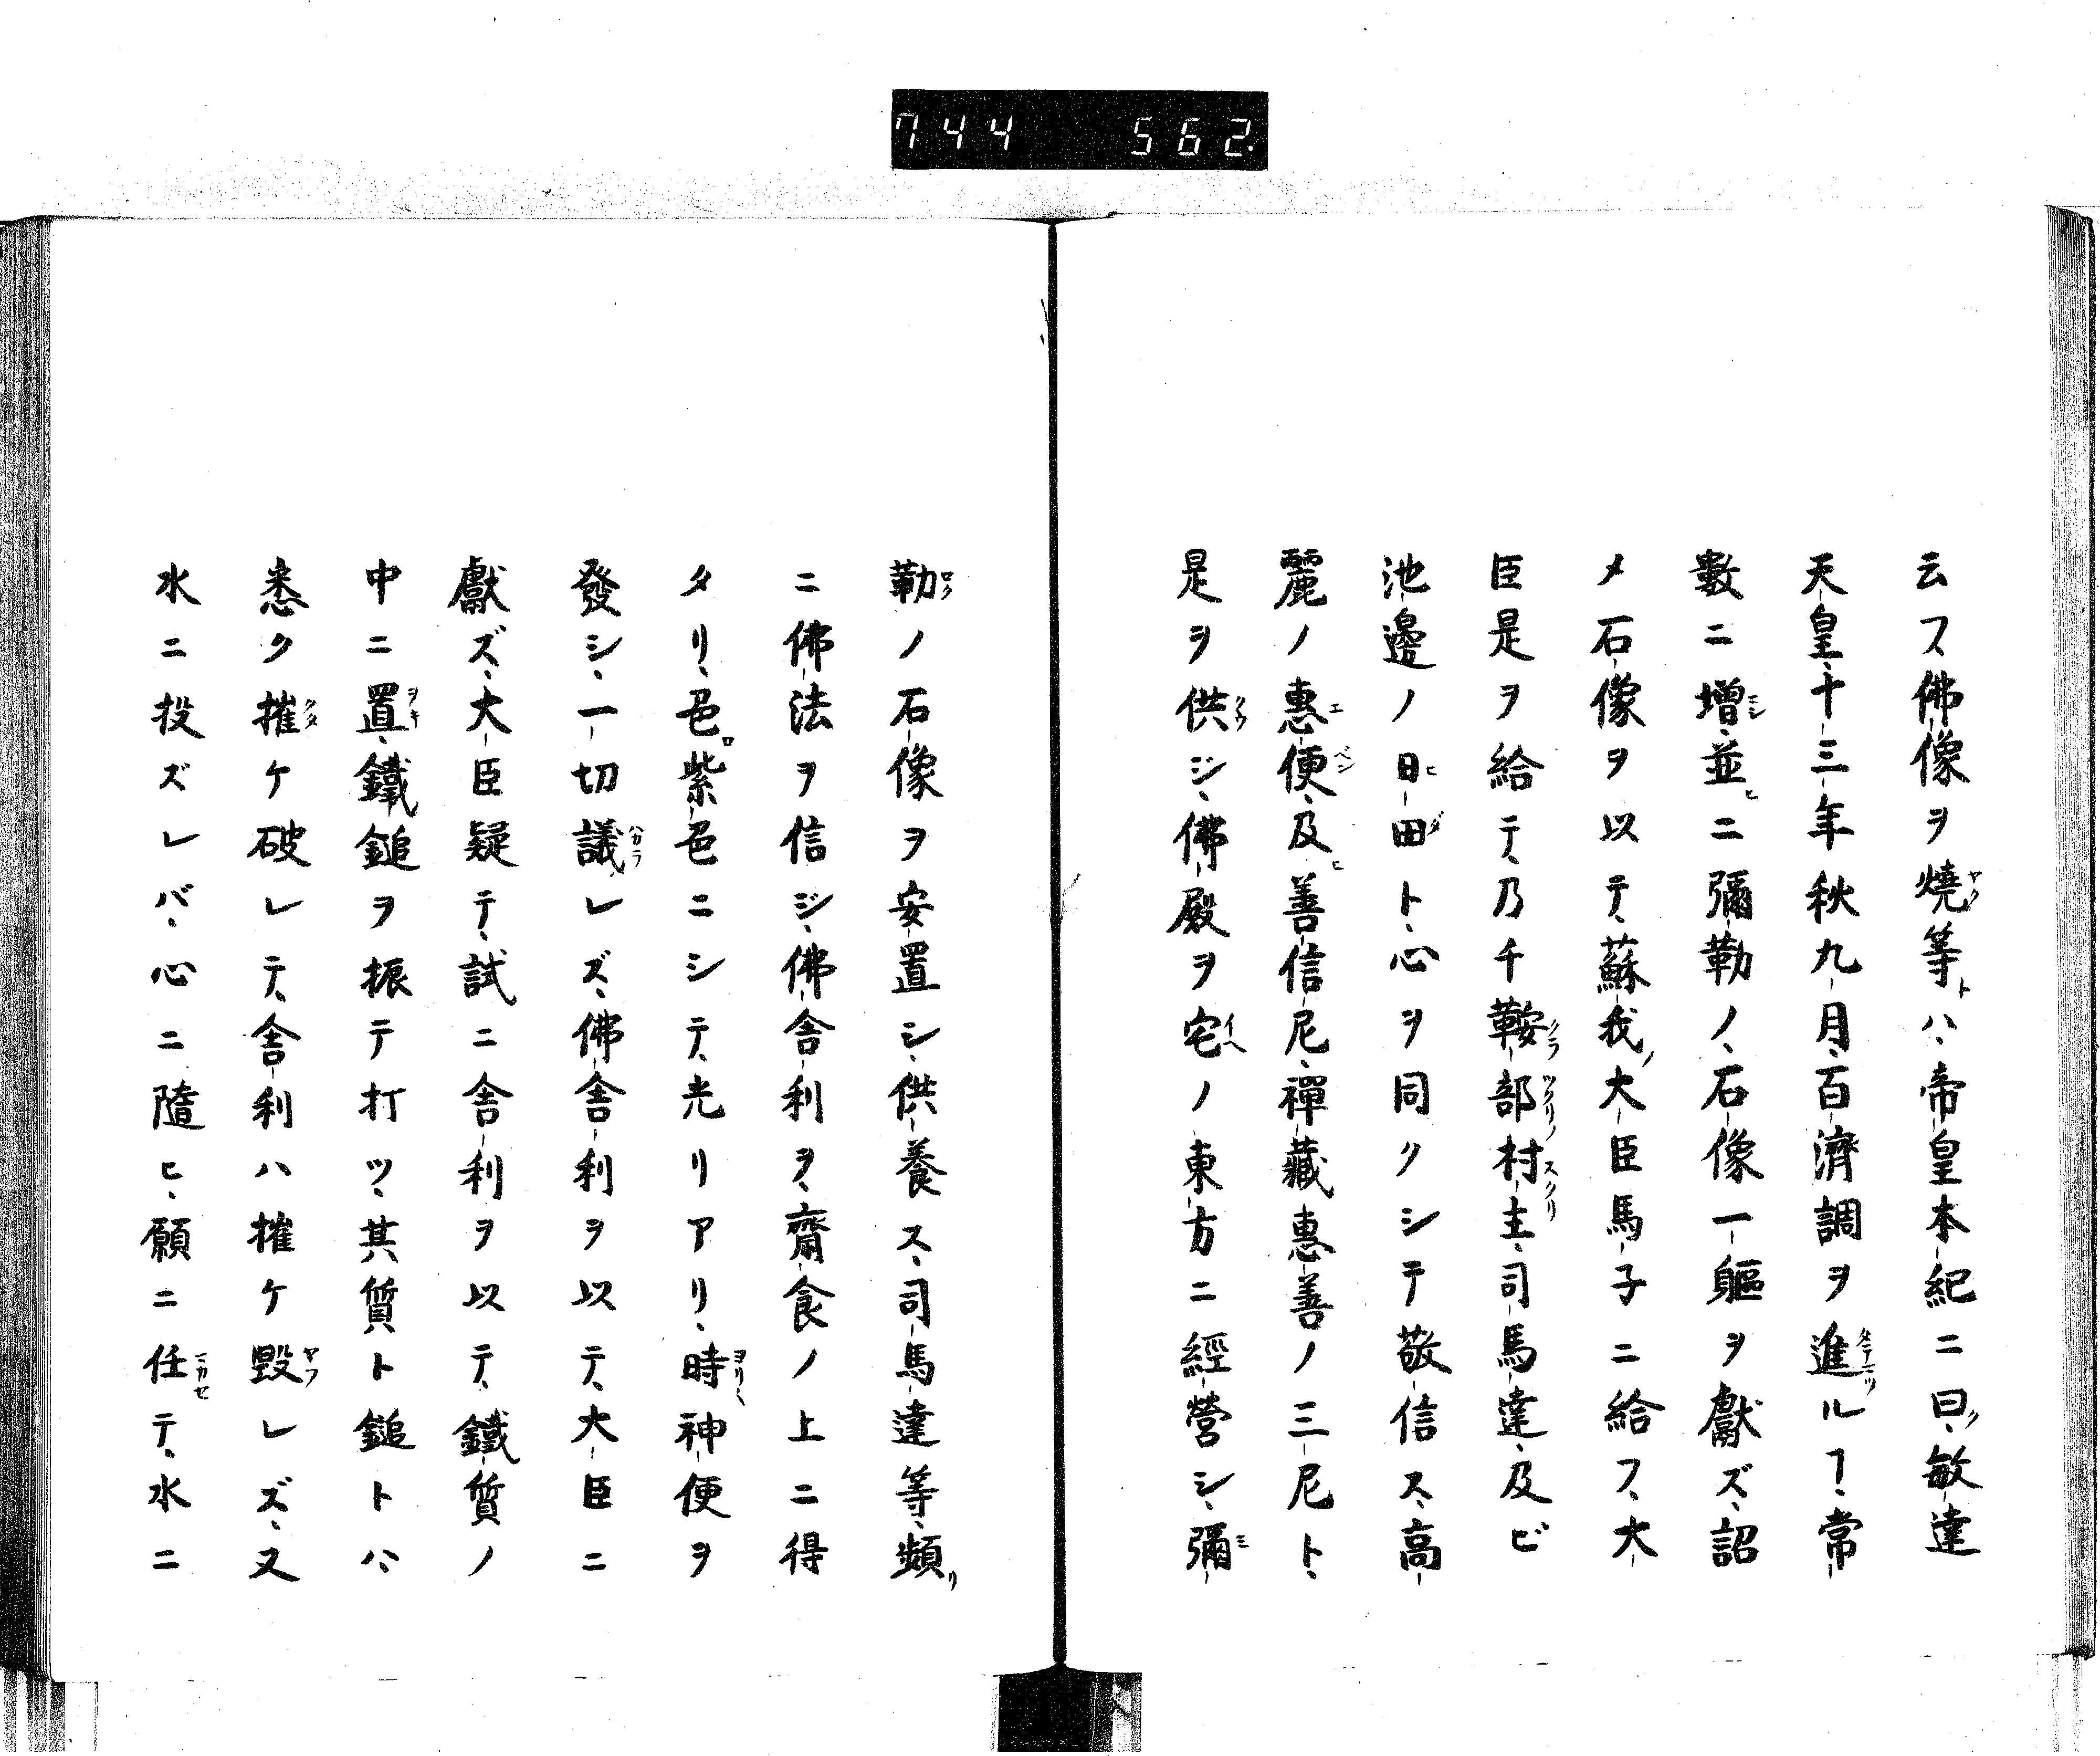 744 562.
云フ佛像ヲ燒等ハ、帝皇本紀ニ曰、敏達
天皇、十三年秋九月、百濟調ヲ進ルヿ、常
數ニ增、並ニ彌勒ノ、石像一軀ヲ獻ズ、詔
メ石像ヲ以テ、蘇我大臣馬子ニ給フ、大
臣是ヲ給テ、乃千鞍部村主、司馬達、及ビ
池邊ノ日田ト、心ヲ同クシテ敬信ス、高
麗ノ惠便、及善信尼、禪藏惠善ノ三尼ト、
是ヲ供ジ、佛殿ヲ宅ノ東方ニ經營シ、彌
勒ノ石像ヲ安置シ、供養ス、司馬達等、頻
ニ佛法ヲ信ジ、佛舎利ヲ、齋食ノ上ニ得
タリ、色紫色ニシテ、光リアリ、時神便ヲ
發シ、一切議レズ、佛舎利ヲ以テ、大臣ニ
獻ズ、大臣疑テ、試ニ舎利ヲ以テ、鐵質ノ
中ニ置、鐵鎚ヲ振テ打ツ、其質ト鎚トハ、
悉ク摧ケ破レテ、舎利ハ摧ケ毀レズ、又
水ニ投ズレバ、心ニ隨ヒ、願ニ任テ、水ニ